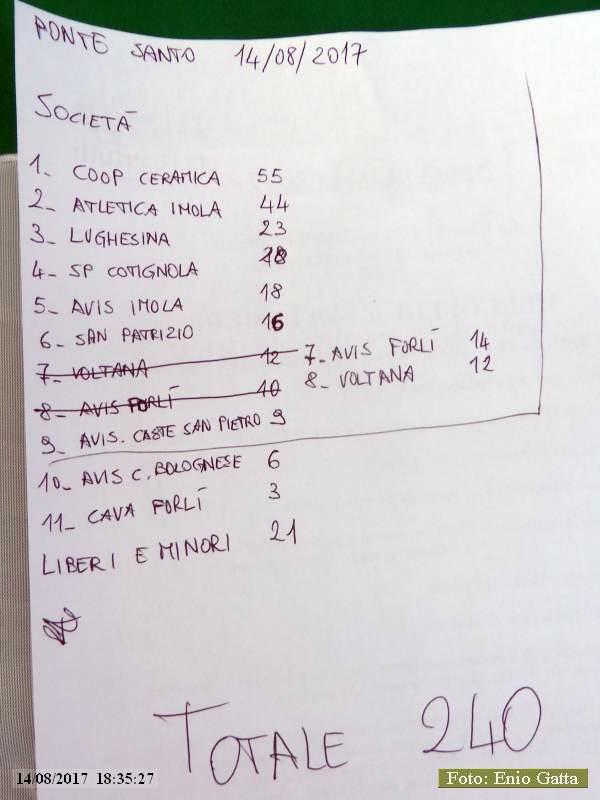 PONTE SANTO 14/08/2017
SOCIETÀ
1- COOP CERAMICA 55
2- ATLETICA IMOLA 44
3- LUGHESINA 23
4- SP COTIGNOLA
5- AVIS IMOLA 18
6- SAN PATRIZIO 16
7- VOLTANA 12
7- AVIS FORLÍ 14
8- AVIS FORLÍ 10
8- VOLTANA 12
9- AVIS. CASTE SAN PIETRO 9
10- AVIS C. BOLOGNESE 6
11- CAVA FORLÍ 3
LIBERI E MINORI 21
TOTALE 240
14/08/2017 18:35:27
Foto: Enio Gatta